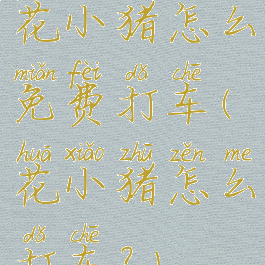 花小猪怎么
miǎn fèi dǎ chē
免费打车(
huā xiǎo zhū zěn me
花小猪怎么
dǎ chē
打车?)